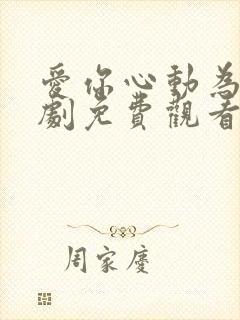 愛你心動為
劇免費觀看
周家慶